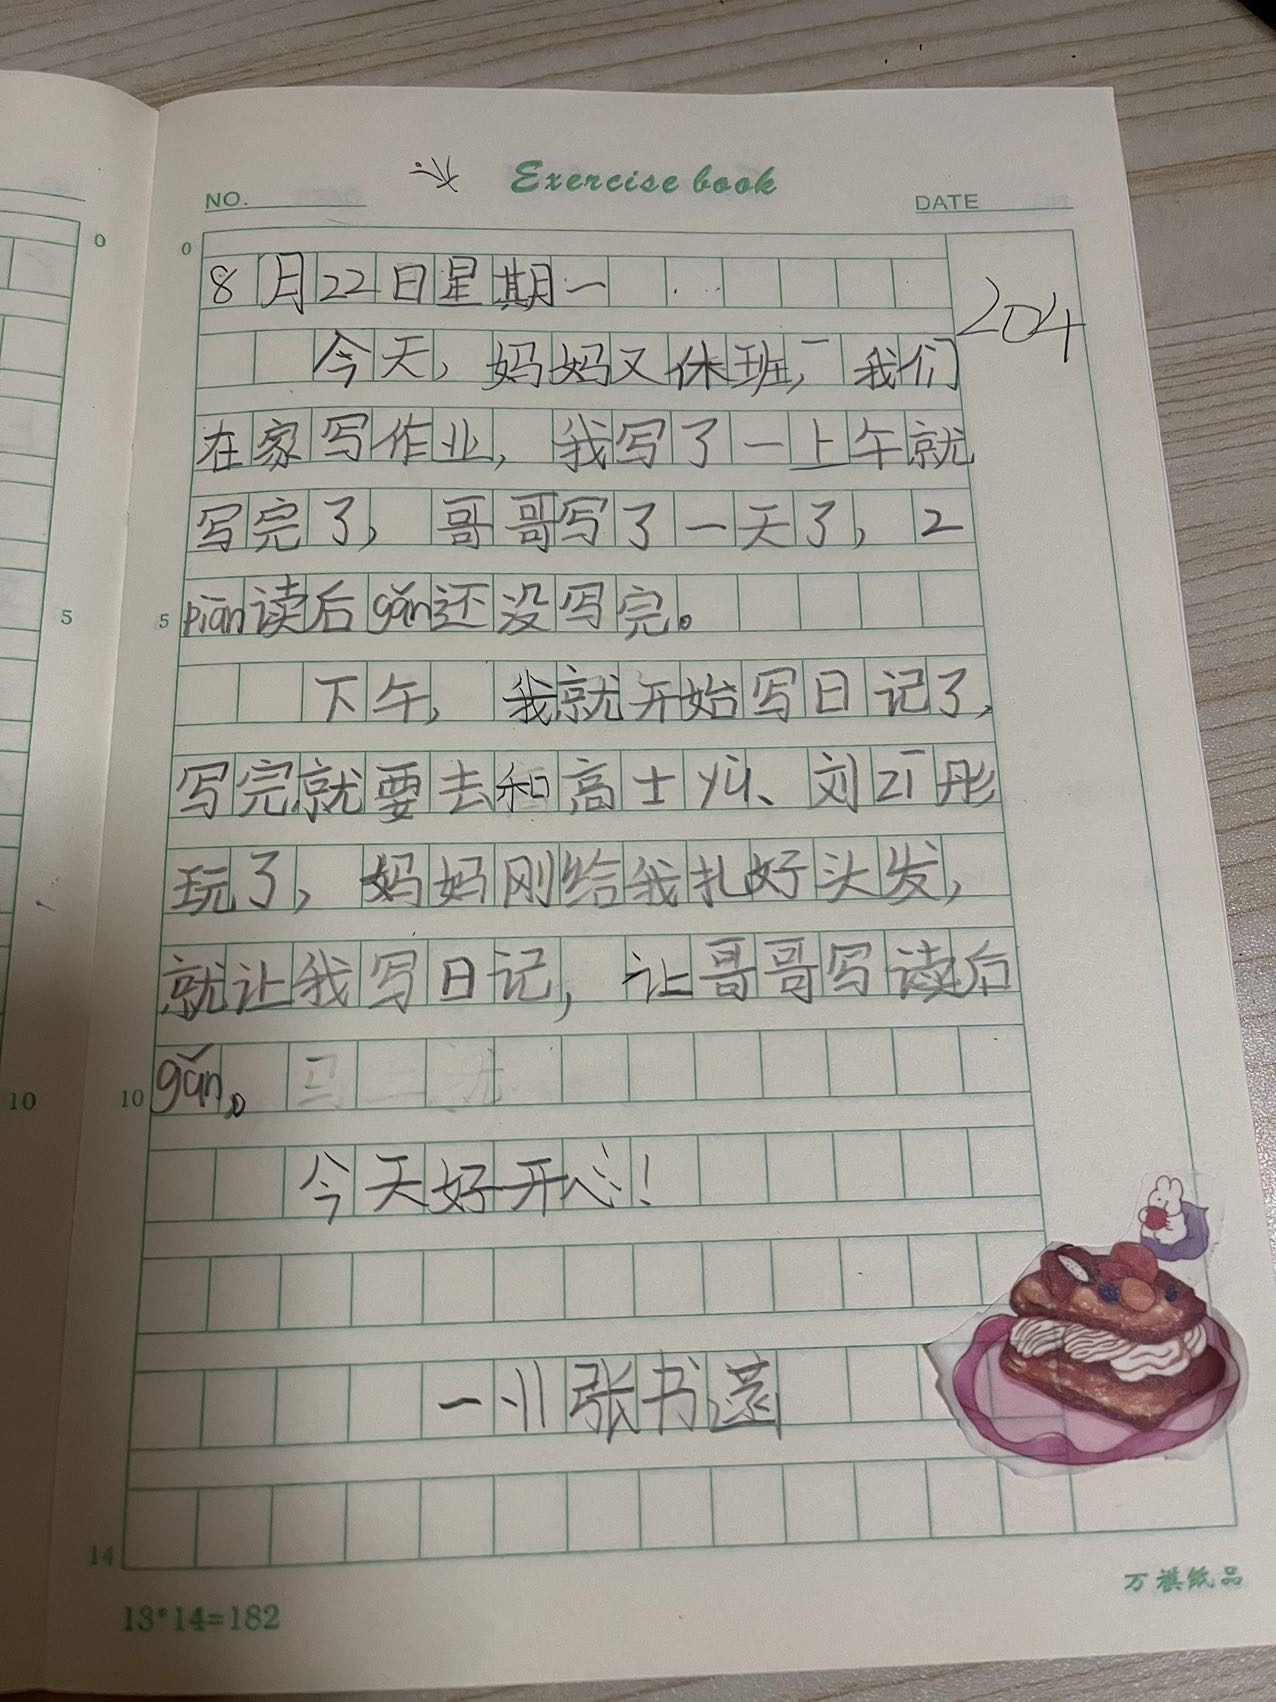 Exercise book
NO.
DATE
0
0
8月22日星期一
204
今天，妈妈又休班，我们
在家写作业，我写了一上午就
写完了，哥哥写了一天了，2
5
5
piān读后gǎn还没写完。
下午，我就开始写日记了，
写完就要去和高士yǔ、刘zǐ彤
玩了，妈妈刚给我扎好头发，
就让我写日记，让哥哥写读后
10
10
gǎn。
今天好开心！
张书
14
万祺纸品
13*14=182